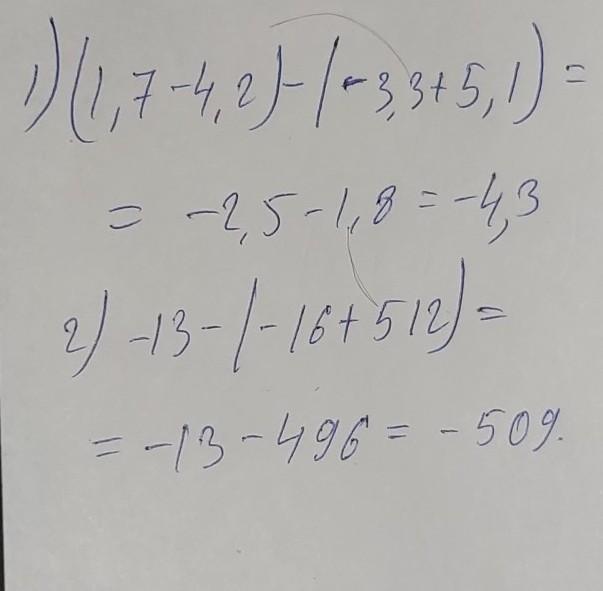 1) (1,7-4,2)-(-3,3+5,1)=
= -2,5-1,8=-4,3
2) -13-(-16+512)=
= -13-496=-509.